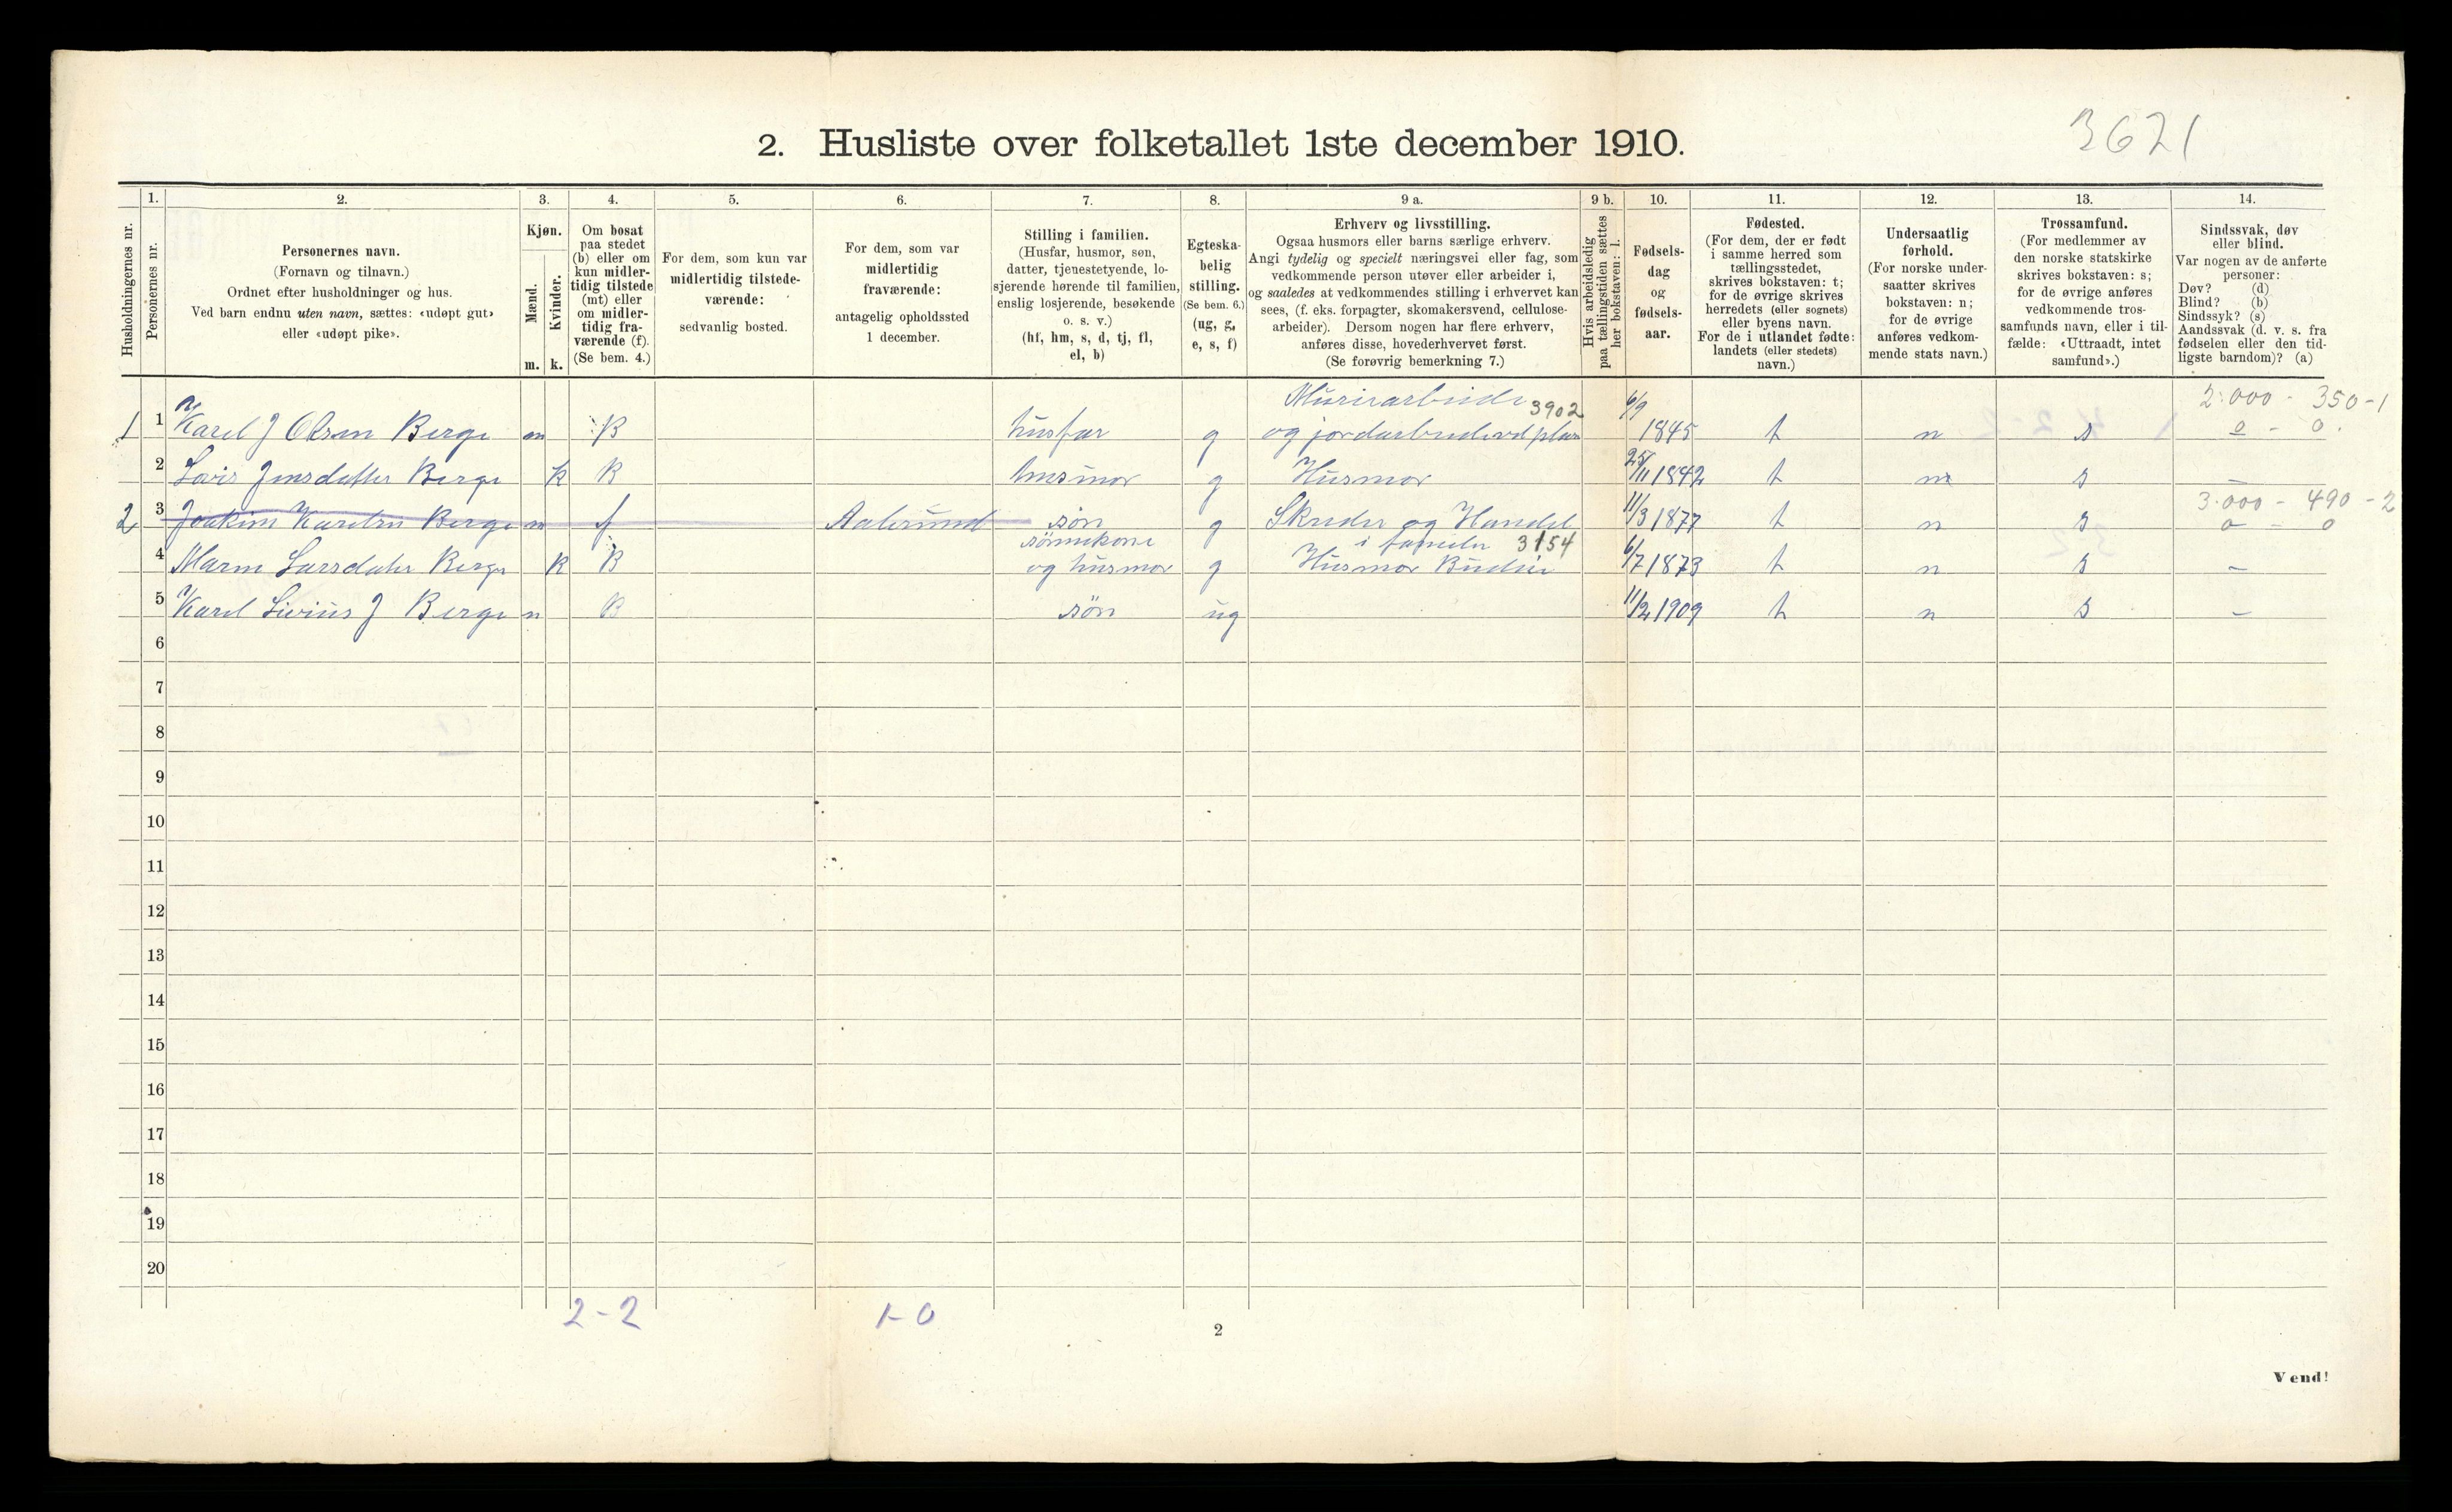 3621
2. Husliste over folketallet 1ste december 1910.
Husholdningernes nr.
1.
Personernes nr.
2.
Personernes navn.
(Fornavn og tilnavn.)
Ordnet efter husholdninger og hus.
Ved barn endnu uten navn, sættes: «udøpt gut»
eller «udøpt pike».
3.
Kjøn.
Mænd.
Kvinder.
m. k.
4.
Om bosat
paa stedet
(b) eller om
kun midler-
tidig tilstede
(mt) eller
om midler-
tidig fra-
værende (f).
(Se bem. 4.)
5.
For dem, som kun var
midlertidig tilstede-
værende:
sedvanlig bosted.
6.
For dem, som var
midlertidig
fraværende:
antagelig opholdssted
1 december.
7.
Stilling i familien.
(Husfar, husmor, søn,
datter, tjenestetyende, lo-
sjerende hørende til familien,
enslig losjerende, besøkende
o. s. v.)
(hf, hm, s, d, tj, fl,
el, b)
8.
Egteska-
belig
stilling.
(Se bem. 6.)
(ug, g,
e, s, f)
9 a.
Erhverv og livsstilling.
Ogsaa husmors eller barns særlige erhverv.
Angi tydelig og specielt næringsvei eller fag, som
vedkommende person utøver eller arbeider i,
og saaledes at vedkommendes stilling i erhvervet kan
sees, (f. eks. forpagter, skomakersvend, cellulose-
arbeider). Dersom nogen har flere erhverv,
anføres disse, hovederhvervet først.
(Se forøvrig bemerkning 7.)
9 b.
Hvis arbeidsledig
paa tællingstiden sættes
her bokstaven: l.
10.
Fødsels-
dag
og
fødsels-
aar.
11.
Fødested.
(For dem, der er født
i samme herred som
tællingsstedet,
skrives bokstaven: t;
for de øvrige skrives
herredets (eller sognets)
eller byens navn.
For de i utlandet fødte:
landets (eller stedets)
navn.)
12.
Undersaatlig
forhold.
(For norske under-
saatter skrives
bokstaven: n;
for de øvrige
anføres vedkom-
mende stats navn.)
13.
Trossamfund.
(For medlemmer av
den norske statskirke
skrives bokstaven: s;
for de øvrige anføres
vedkommende tros-
samfunds navn, eller i til-
fælde: «Uttraadt, intet
samfund».)
14.
Sindssvak, døv
eller blind.
Var nogen av de anførte
personer:
Døv? (d)
Blind? (b)
Sindssyk? (s)
Aandssvak (d. v. s. fra
fødselen eller den tid-
ligste barndom)? (a)
3902 6/9 2.000 - 350-1
1 1 Karel J Olsen Berge m B husfar g og 1845 t n s 0 - 0.
2 Jensdatter Berge k B husmor g Husmor 25/11 1842 t n s -
3.000 - 490 - 2
2 3 Joakim Karelsen Berge m f Aalesund søn g Skreder og Handel 11/3 1877 t n s 0 - 0
sønnekone i 3154
4 Larsdatter Berge k B og husmor g Husmor 6/7 1873 t n s -
5 Karel Livius J Berge m B søn ug 11/2 1909 t n s -
6
7
8
9
10
11
12
13
14
15
16
17
18
19
20
2-2 1-0
2
Vend!